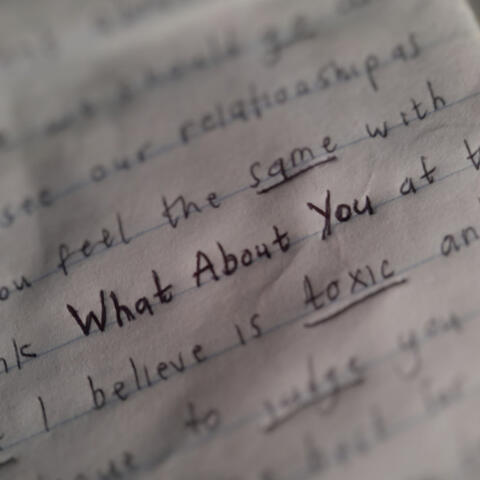 should go
see our relationship as
ou feel the same with
nk What About You at t
I believe is toxic an
to judge you